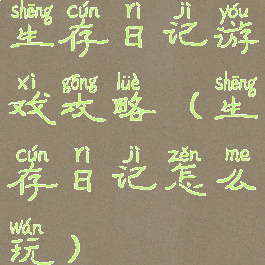 shēng cún rì jì yóu
生存日记游
xì gōng lüè shēng
戏攻略(生
cún rì jì zěn me
存日记怎么
wán
玩)